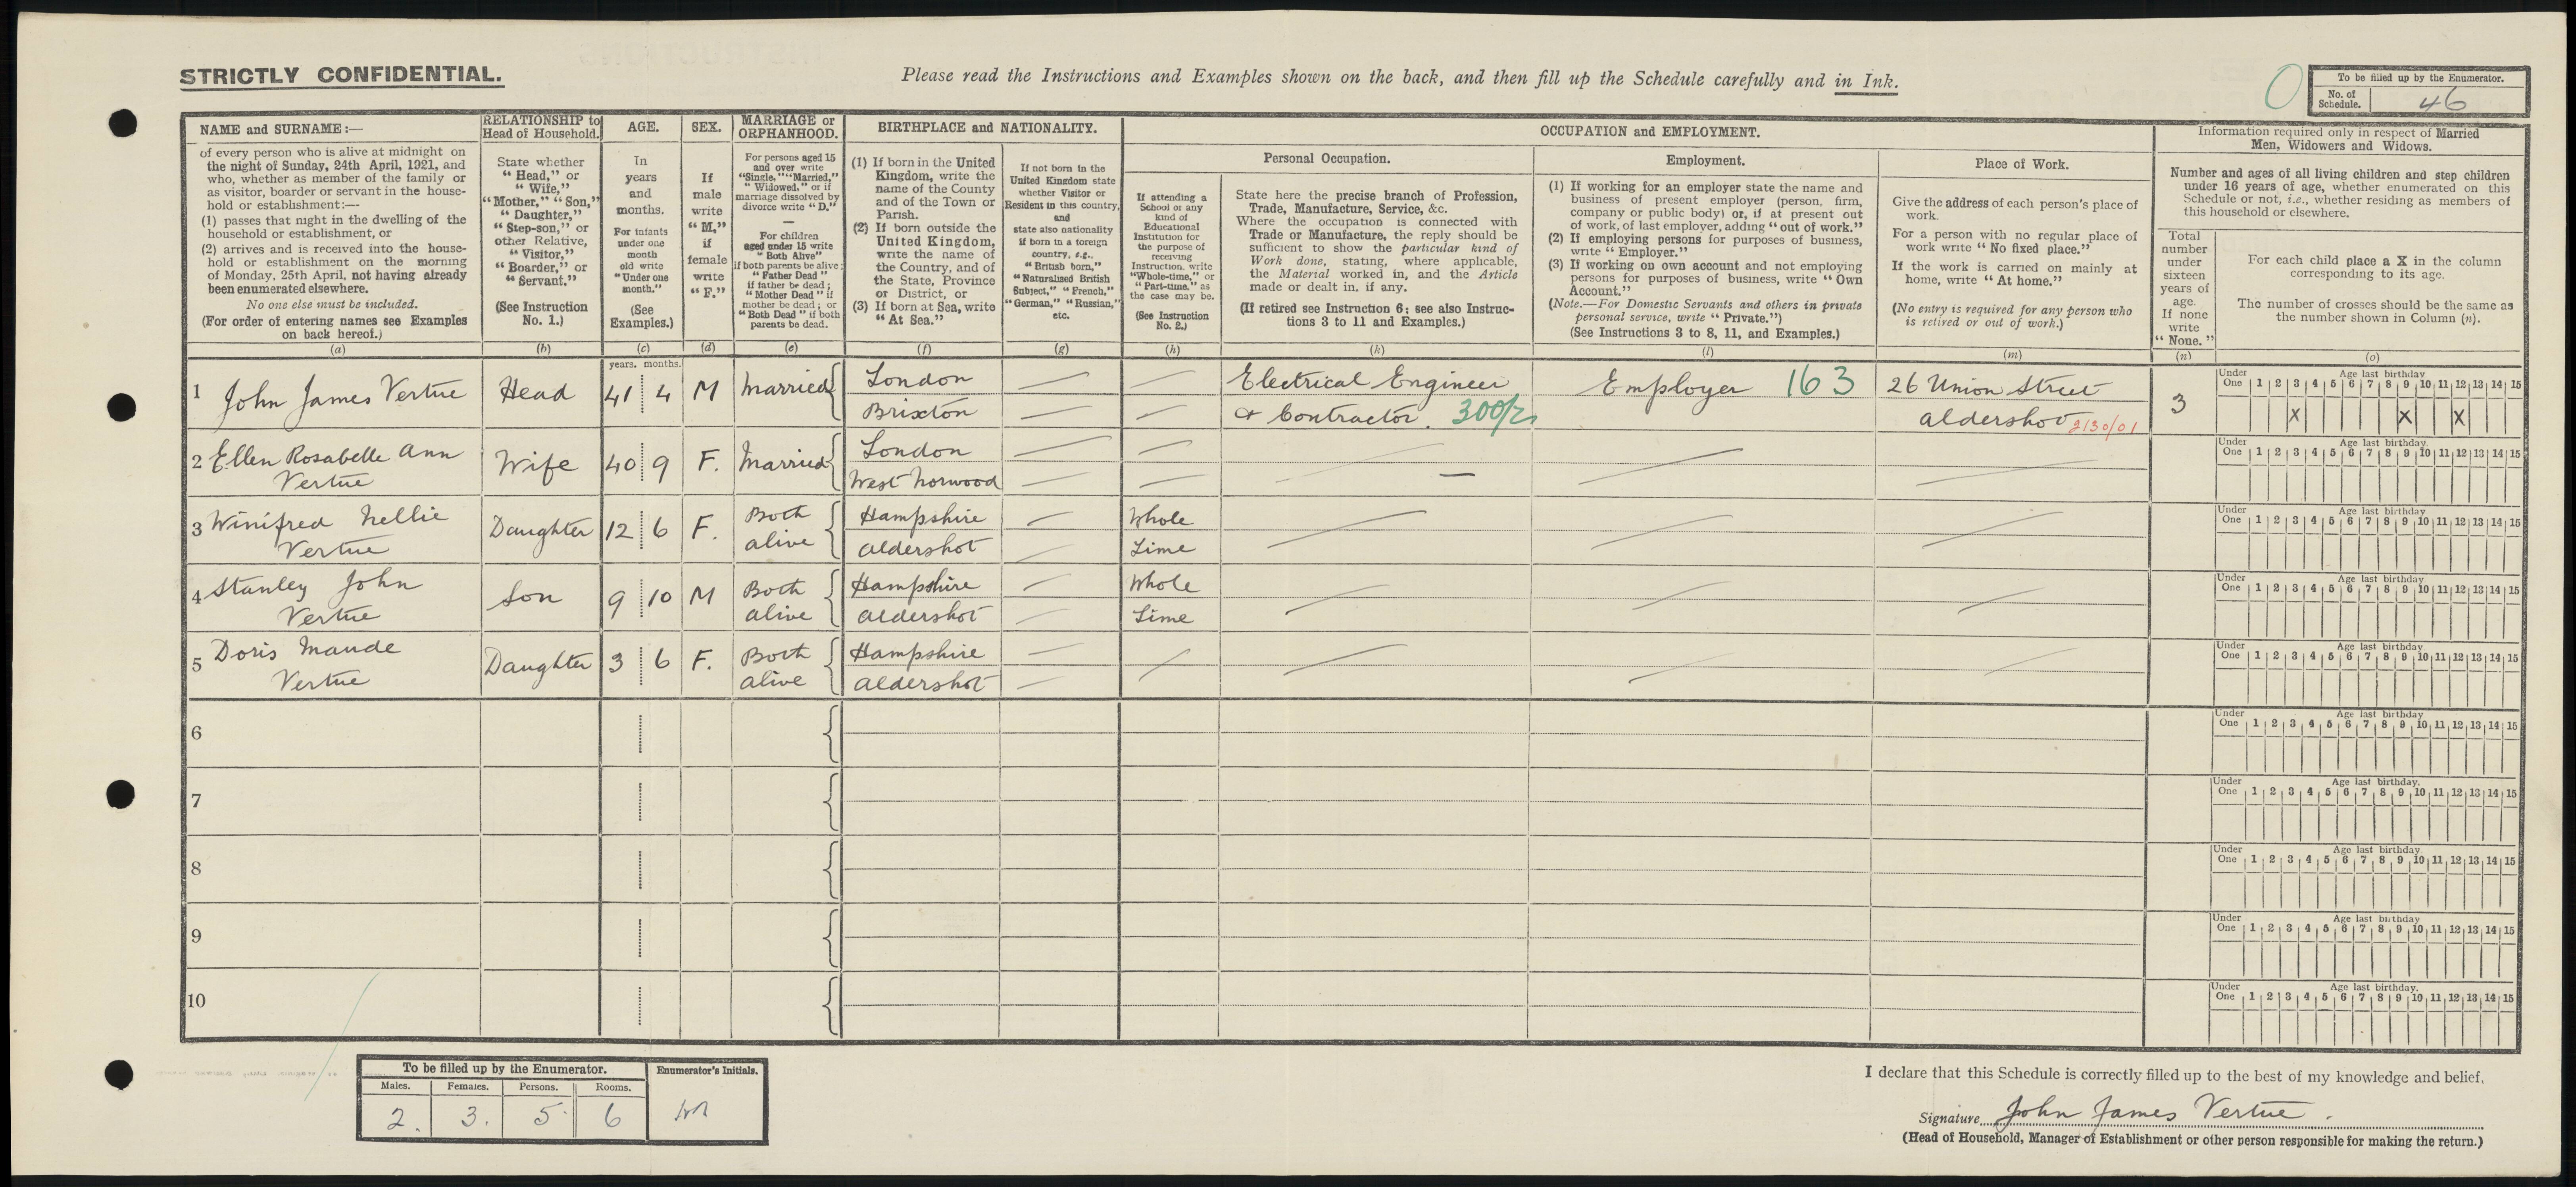 STRICTLY CONFIDENTIAL.
Please read the Instructions and Examples shown on the back, and then fill up the Schedule carefully and in Ink.
To be filled up by the Enumerator.
No. of Schedule. 46
NAME and SURNAME:—
of every person who is alive at midnight on
the night of Sunday, 24th April, 1921, and
who, whether as member of the family or
as visitor, boarder or servant in the house-
hold or establishment:—
(1) passes that night in the dwelling of the
household or establishment, or
(2) arrives and is received into the house-
hold or establishment on the morning
of Monday, 25th April, not having already
been enumerated elsewhere.
No one else must be included.
(For order of entering names see Examples
on back hereof.)
(a)
RELATIONSHIP to
Head of Household.
State whether
"Head," or
"Wife,"
"Mother," "Son,"
"Daughter,"
"Step-son," or
other Relative,
"Visitor,"
"Boarder," or
"Servant."
(See Instruction
No. 1.)
(b)
AGE.
In
years
and
months.
For infants
under one
month
old write
"Under one
month."
(See
Examples.)
(c)
SEX.
If
male
write
"M,"
if
female
write
"F."
(d)
MARRIAGE or
ORPHANHOOD.
For persons aged 15
and over write
"Single," "Married,"
"Widowed," or if
marriage dissolved by
divorce write "D."
—
For children
aged under 15 write
"Both Alive"
if both parents be alive;
"Father Dead"
if father be dead;
"Mother Dead" if
mother be dead; or
"Both Dead" if both
parents be dead.
(e)
BIRTHPLACE and NATIONALITY.
(1) If born in the United
Kingdom, write the
name of the County
and of the Town or
Parish.
(2) If born outside the
United Kingdom,
write the name of
the Country, and of
the State, Province
or District, or
(3) If born at Sea, write
"At Sea."
(f)
If not born in the
United Kingdom state
whether Visitor or
Resident in this country,
and
state also nationality
if born in a foreign
country, e.g.,
"British born,"
"Naturalised British
Subject," "French,"
"German," "Russian,"
etc.
(g)
OCCUPATION and EMPLOYMENT.
Personal Occupation.
If attending a
School or any
kind of
Educational
Institution for
the purpose of
receiving
Instruction, write
"Whole-time," or
"Part-time," as
the case may be.
(See Instruction
No. 2.)
(h)
State here the precise branch of Profession,
Trade, Manufacture, Service, &c.
Where the occupation is connected with
Trade or Manufacture, the reply should be
sufficient to show the particular kind of
Work done, stating, where applicable,
the Material worked in, and the Article
made or dealt in, if any.
(If retired see Instruction 6; see also Instruc-
tions 3 to 11 and Examples.)
(k)
Employment.
(1) If working for an employer state the name and
business of present employer (person, firm,
company or public body) or, if at present out
of work, of last employer, adding "out of work."
(2) If employing persons for purposes of business,
write "Employer."
(3) If working on own account and not employing
persons for purposes of business, write "Own
Account."
(Note.—For Domestic Servants and others in private
personal service, write "Private.")
(See Instructions 3 to 8, 11, and Examples.)
(l)
Place of Work.
Give the address of each person's place of
work.
For a person with no regular place of
work write "No fixed place."
If the work is carried on mainly at
home, write "At home."
(No entry is required for any person who
is retired or out of work.)
(m)
Information required only in respect of Married
Men, Widowers and Widows.
Number and ages of all living children and step children
under 16 years of age, whether enumerated on this
Schedule or not, i.e., whether residing as members of
this household or elsewhere.
Total
number
under
sixteen
years of
age.
If none
write
"None."
(n)
For each child place a X in the column
corresponding to its age.
The number of crosses should be the same as
the number shown in Column (n).
(o)
years. months.
1 John James Vertue Head 41 4 M Married London Electrical Engineer Employer 163 26 Union Street 3
Brixton & Contractor. 300/2 Aldershot 2130/01
Under One Age last birthday 1 2 3 4 5 6 7 8 9 10 11 12 13 14 15
X X X
2 Ellen Rosabelle Ann Wife 40 9 F. Married London
Vertue West Norwood
Under One Age last birthday. 1 2 3 4 5 6 7 8 9 10 11 12 13 14 15
3 Winifred Nellie Daughter 12 6 F. Both Hampshire Whole
Vertue alive Aldershot Time
Under One Age last birthday 1 2 3 4 5 6 7 8 9 10 11 12 13 14 15
4 Stanley John Son 9 10 M Both Hampshire Whole
Vertue alive Aldershot Time
Under One Age last birthday 1 2 3 4 5 6 7 8 9 10 11 12 13 14 15
5 Doris Maude Daughter 3 6 F. Both Hampshire
Vertue alive Aldershot
Under One Age last birthday 1 2 3 4 5 6 7 8 9 10 11 12 13 14 15
6
Under One Age last birthday 1 2 3 4 5 6 7 8 9 10 11 12 13 14 15
7
Under One Age last birthday. 1 2 3 4 5 6 7 8 9 10 11 12 13 14 15
8
Under One Age last birthday 1 2 3 4 5 6 7 8 9 10 11 12 13 14 15
9
Under One Age last birthday 1 2 3 4 5 6 7 8 9 10 11 12 13 14 15
10
Under One Age last birthday. 1 2 3 4 5 6 7 8 9 10 11 12 13 14 15
To be filled up by the Enumerator. Enumerator's Initials.
Males. Females. Persons. Rooms.
2. 3. 5. 6
I declare that this Schedule is correctly filled up to the best of my knowledge and belief.
Signature John James Vertue.
(Head of Household, Manager of Establishment or other person responsible for making the return.)